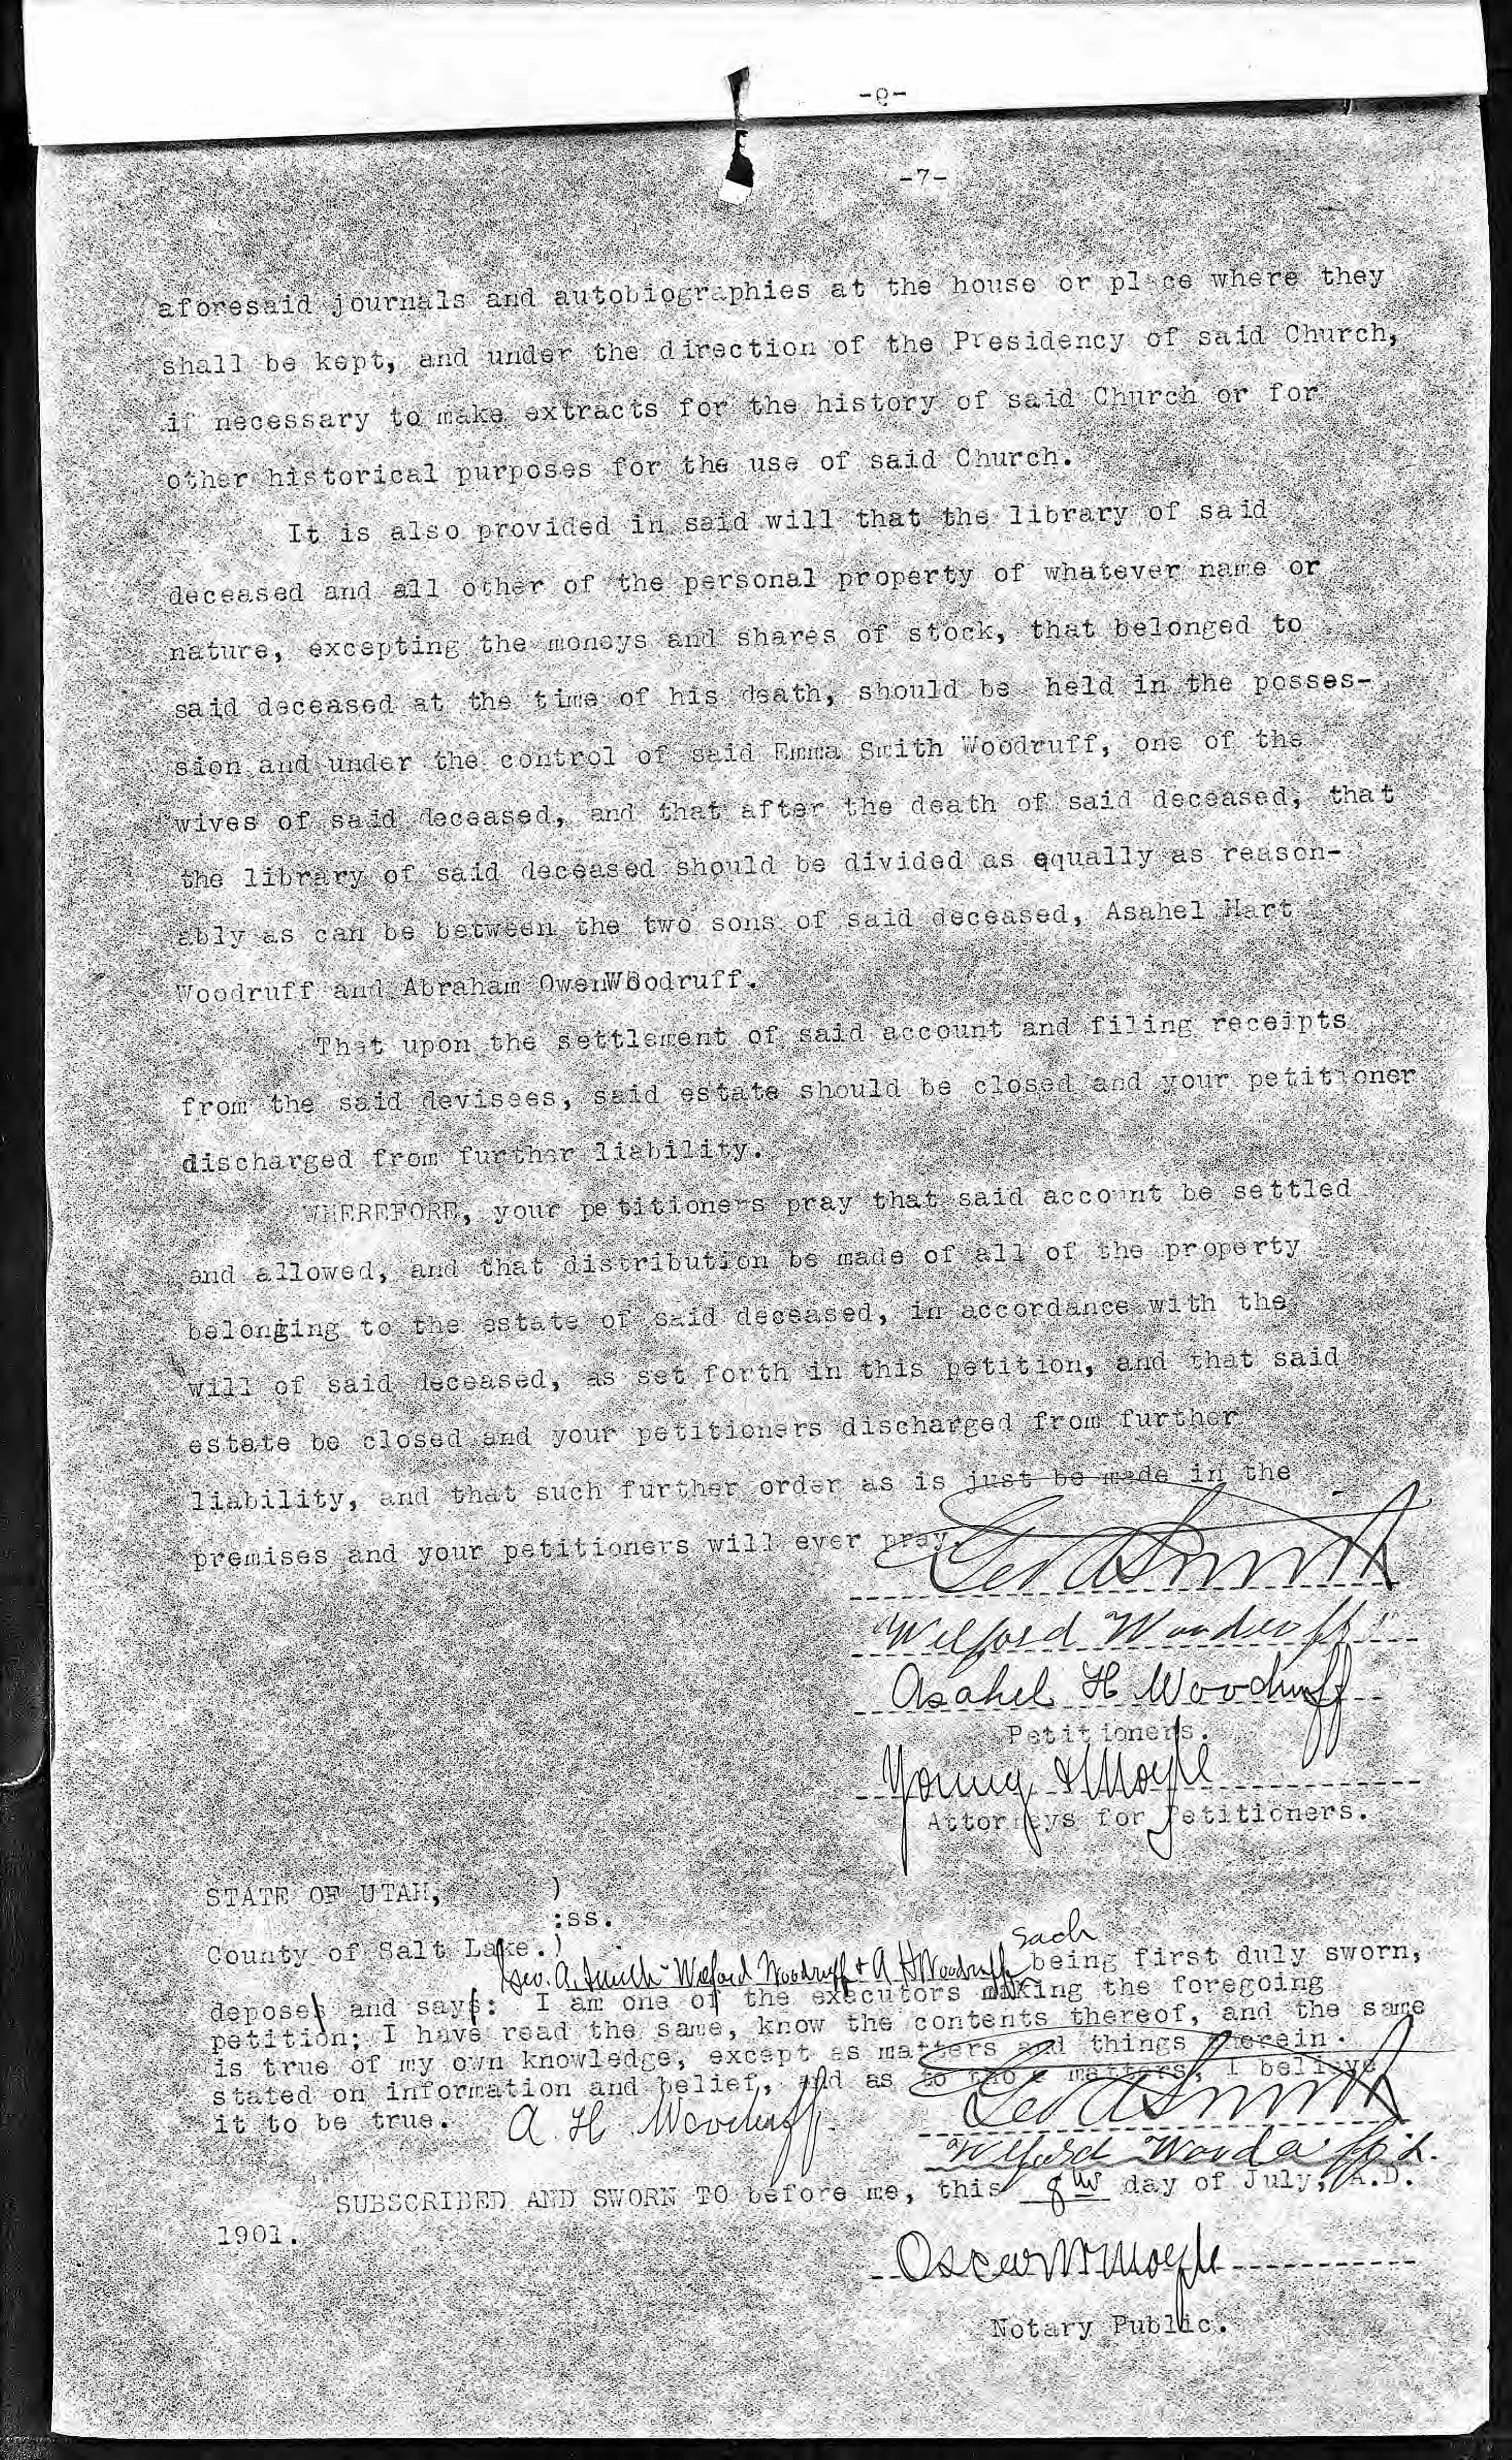 -8-
-7-
aforesaid journals and autobiographies at the house or place where they
shall be kept, and under the direction of the Presidency of said Church,
if necessary to make extracts for the history of said Church or for
other historical purposes for the use of said Church.
It is also provided in said will that the library of said
deceased and all other of the personal property of whatever name or
nature, excepting the moneys and shares of stock, that belonged to
said deceased at the time of his death, should be held in the posses-
sion and under the control of said Emma Smith Woodruff, one of the
wives of said deceased, and that after the death of said deceased, that
the library of said deceased should be divided as equally as reason-
ably as can be between the two sons of said deceased, Asahel Hart
Woodruff and Abraham OwenWoodruff.
That upon the settlement of said account and filing receipts
from the said devisees, said estate should be closed and your petitioner
discharged from further liability.
WHEREFORE, your petitioners pray that said account be settled
and allowed, and that distribution be made of all of the property
belonging to the estate of said deceased, in accordance with the
will of said deceased, as set forth in this petition, and that said
estate be closed and your petitioners discharged from further
liability, and that such further order as is just be made in the
premises and your petitioners will ever pray.
Geo A Smith
Wilford Woodruff Jr
Asahel H Woodruff
Petitioners.
Young & Moyle
Attorneys for Petitioners.
STATE OF UTAH, )
:ss.
County of Salt Lake.)
Geo. A. Smith Wilford Woodruff & A H Woodruff each being first duly sworn,
deposes and says: I am one of the executors making the foregoing
petition; I have read the same, know the contents thereof, and the same
is true of my own knowledge, except as matters and things therein
stated on information and belief, and as to those matters, I believe
it to be true.
A. H. Woodruff
Geo A Smith
Wilford Woodruff Jr.
SUBSCRIBED AND SWORN TO before me, this 8th day of July, A.D.
1901.
Oscar W Moyle
Notary Public.